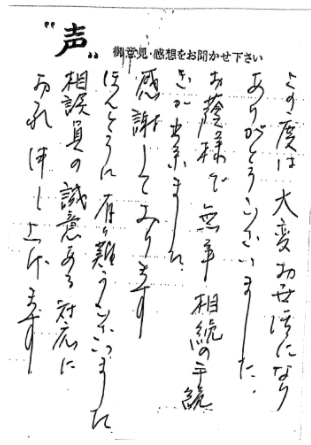 "声"
御意見・感想をお聞かせ下さい
この度は大変お世話になり
ありがとうございました。
お蔭様で無事相続の手続
きが出来ました。
感謝しております
ほんとうに有り難うございました
相談員の誠意ある対応に
お礼申し上げます